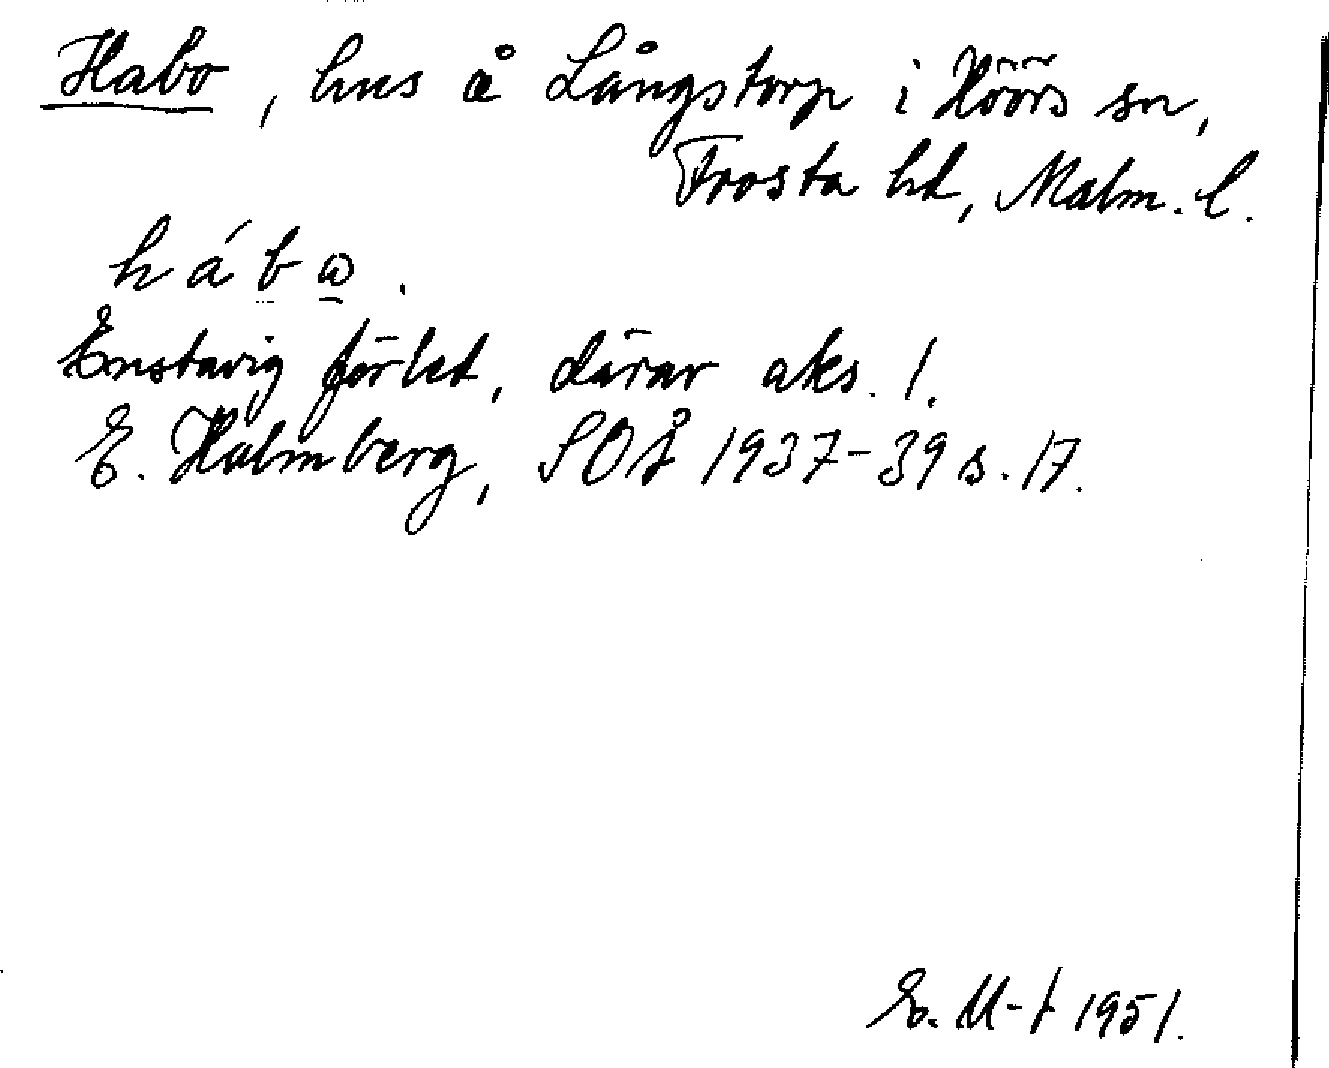 Habo, hus å Långstorp i Höörs sn,
Frosta hd, Malm. l.
hábω.
Enstavig förled, därav aks. 1.
E. Holmberg, SOÅ 1937-39 s. 17.
E. M-t 1951.